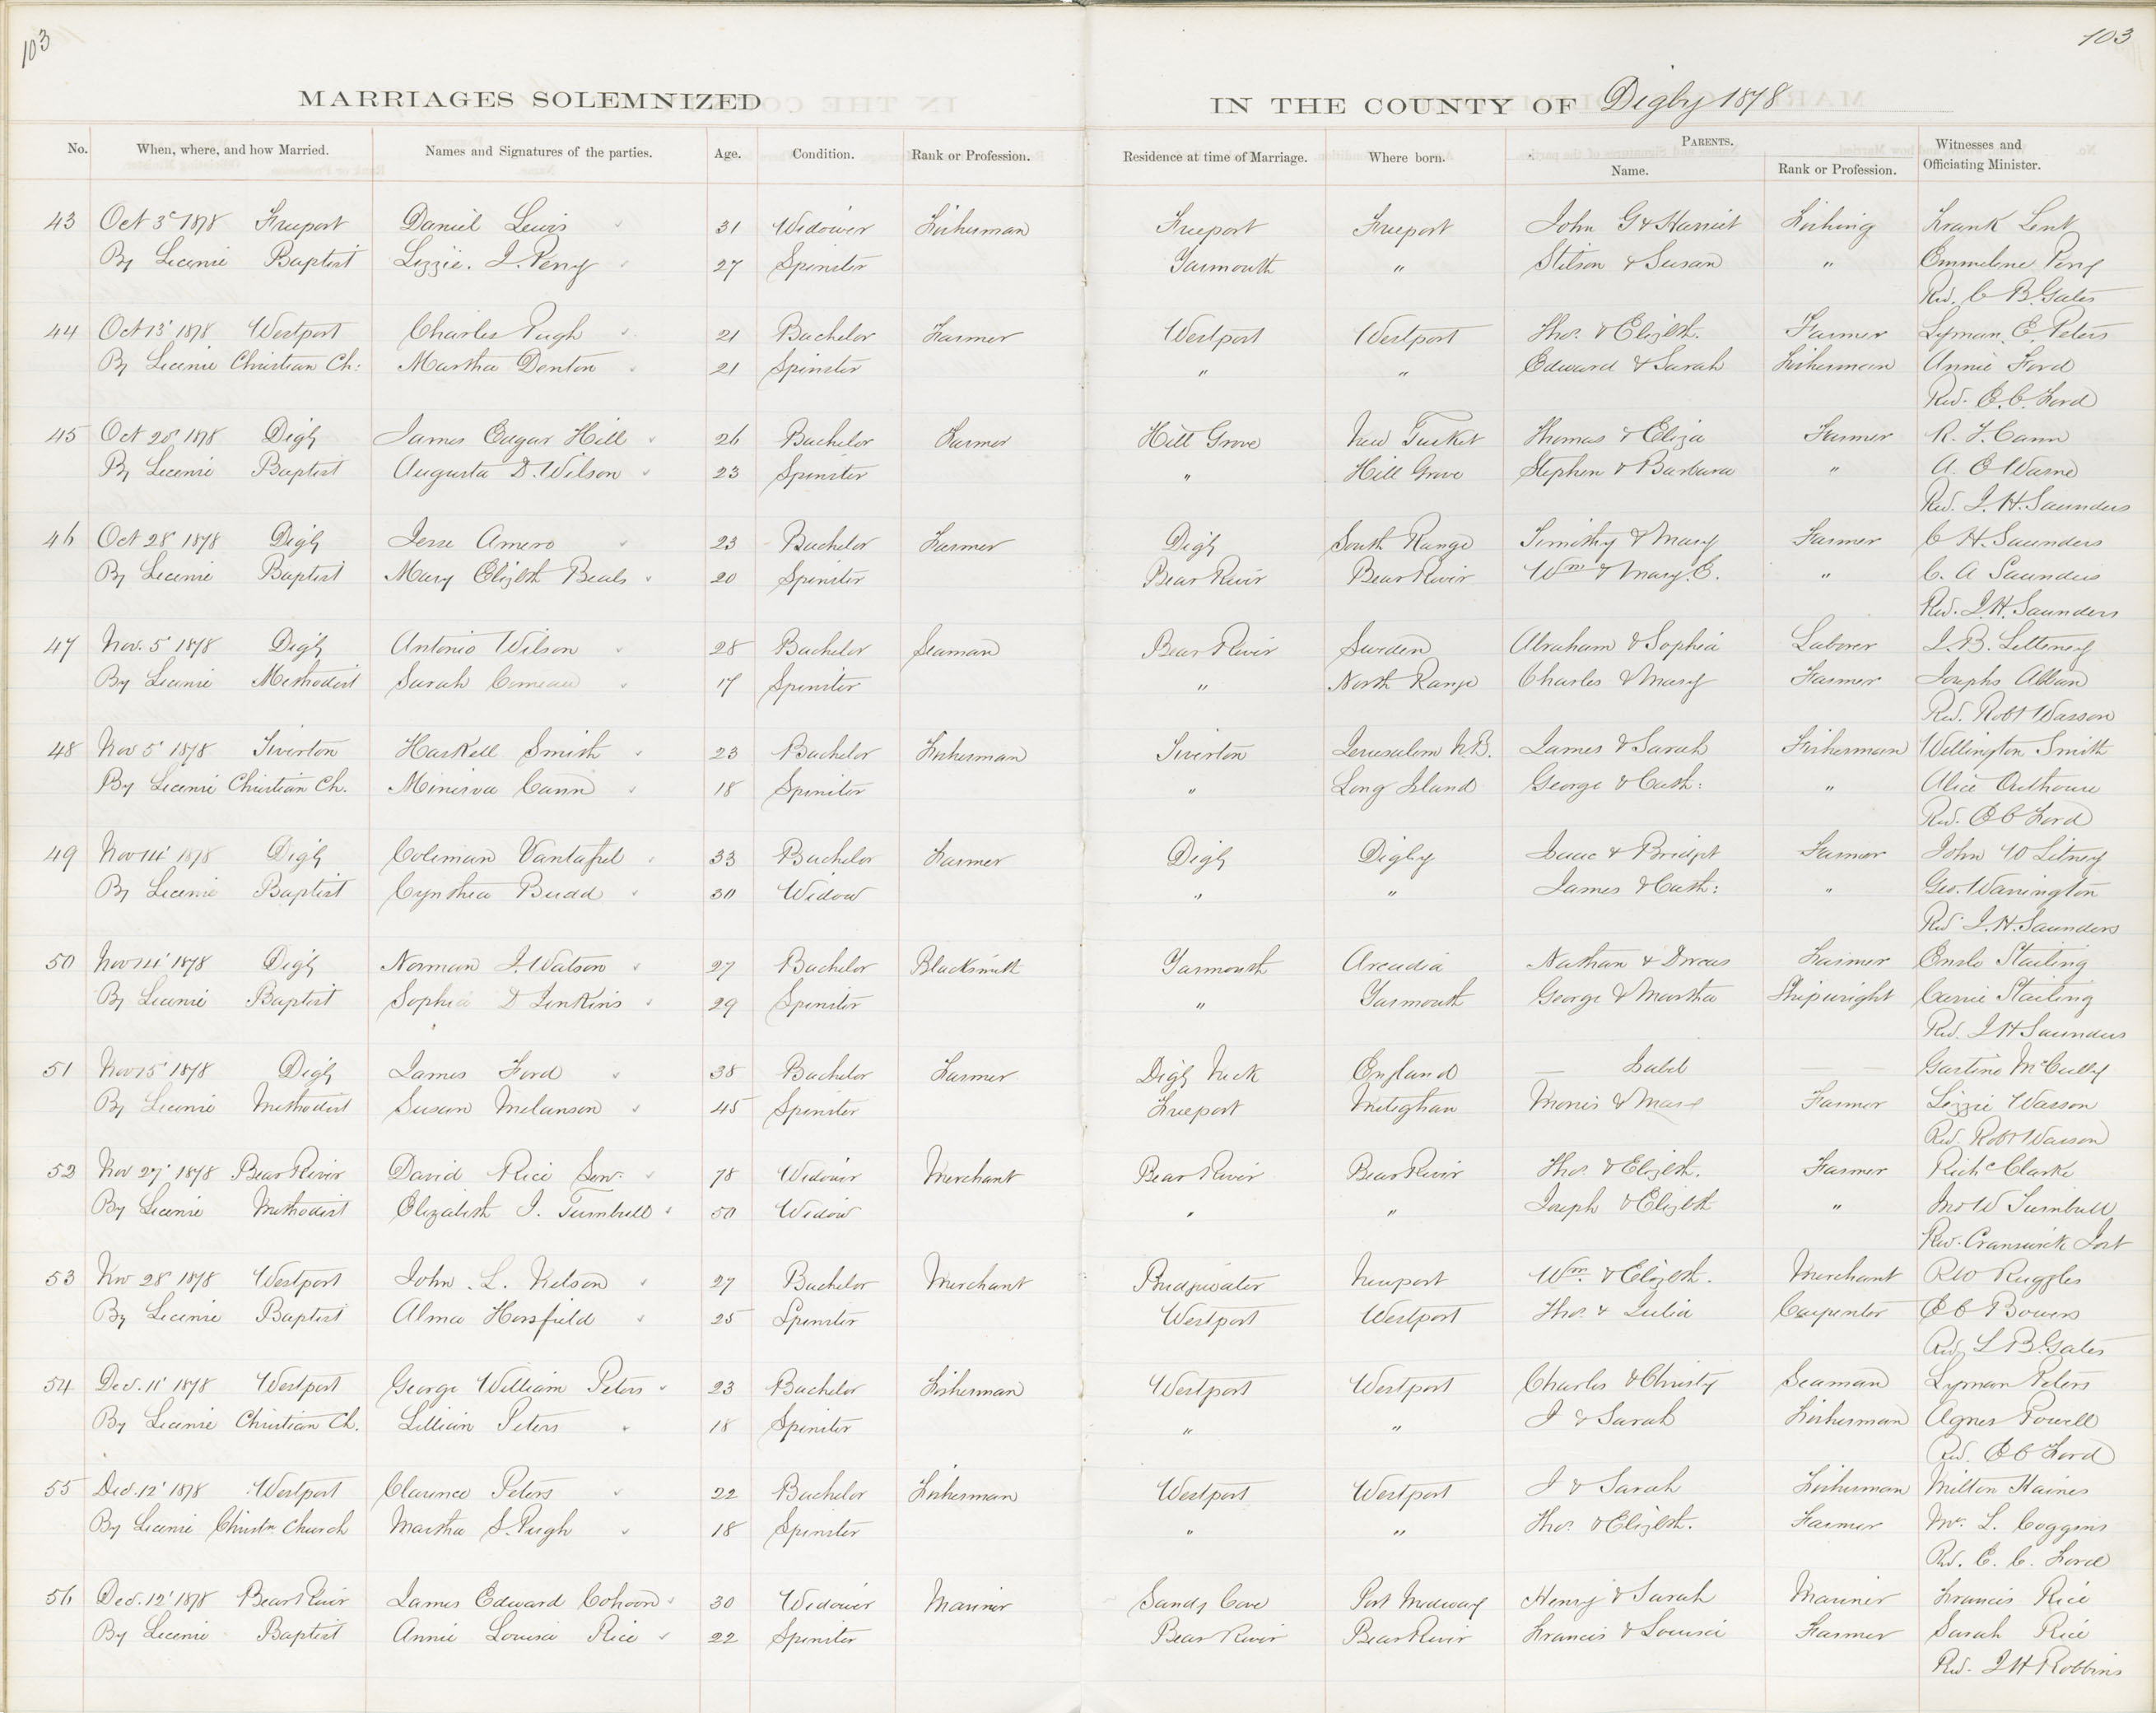 103
103
MARRIAGES SOLEMNIZED IN THE COUNTY OF Digby 1878
No. When, where, and how Married. Names and Signatures of the parties. Age. Condition. Rank or Profession. Residence at time of Marriage. Where born. PARENTS. Name. Rank or Profession. Witnesses and Officiating Minister.
43 Oct 3 1878 Freeport Daniel Lewis 31 Widower Fisherman Freeport Freeport John G & Harriet Fishing Frank Lent
By License Baptist Lizzie. J. Perry 27 Spinster Yarmouth " Stilson & Susan " Emmeline Perry
Rev. C B. Gates
44 Oct 13' 1878 Westport Charles Pugh 21 Bachelor Farmer Westport Westport Thos. & Elizbth. Farmer Lyman. E. Peters
By License Christian Ch: Martha Denton 21 Spinster " " Edward & Sarah Fisherman Annie Ford
Rev. E. C. Ford
45 Oct 20' 1878 Digby James Edgar Hill 26 Bachelor Farmer Hill Grove New Tusket Thomas & Eliza Farmer R. J. Cann
By License Baptist Augusta D. Wilson 23 Spinster " Hill Grove Stephen & Barbara " A. E Warne
Rev. J. H. Saunders
46 Oct 28' 1878 Digby Jesse Amero 23 Bachelor Farmer Digby South Range Timothy & Mary Farmer C H. Saunders
By License Baptist Mary Elizbth Beals 20 Spinster Bear River Bear River Wm & Mary. E. " C. A Saunders
Rev. J. H. Saunders
47 Nov. 5' 1878 Digby Antonio Wilson 28 Bachelor Seaman Bear River Sweden Abraham & Sophia Laborer J. B. Letteney
By License Methodist Sarah Comeau 17 Spinster " North Range Charles & Mary Farmer Josephs Alban
Rev. Robt Wasson
48 Nov 5' 1878 Tiverton Haskell Smith 23 Bachelor Fisherman Tiverton Jerusalem N.B. James & Sarah Fisherman Wellington Smith
By License Christian Ch. Minerva Cann 18 Spinster " Long Island George & Cath: " Alice Outhouse
Rev. E C Ford
49 Nov 14' 1878 Digby Coleman Vantassel 33 Bachelor Farmer Digby Digby Isaac & Bridget Farmer John W Litney
By License Baptist Cynthia Budd 30 Widow " " James & Cath: " Geo. Warrington
Rev J. H. Saunders
50 Nov 14' 1878 Digby Norman J. Watson 27 Bachelor Blacksmith Yarmouth Arcadia Nathan & Dorcas Farmer Enslo Starling
By License Baptist Sophia D Jenkins 29 Spinster " Yarmouth George & Martha Shipwright Carrie Starling
Rev. J H Saunders
51 Nov 15' 1878 Digby James Ford 38 Bachelor Farmer Digby Neck England — — Gastine McCully
By License Methodist Susan Melanson 45 Spinster Freeport Meteghan Morris & Mary Farmer Lizzie Wasson
Rev. Robt Wasson
52 Nov 27' 1878 Bear River David Rice Senr. 78 Widower Merchant Bear River Bear River Thos. & Elizbth. Farmer Richd Clarke
By License Methodist Elizabeth J. Turnbull 50 Widow " " Joseph & Elizbth " Jno W Turnbull
Rev. Cranswick Jost
53 Nov 28' 1878 Westport John. L. Nelson 27 Bachelor Merchant Bridgewater Newport Wm. & Elizbth. Merchant R W Ruggles
By License Baptist Alma Horsfield 25 Spinster Westport Westport Thos. & Julia Carpenter E C Bowers
Rev. C B. Gates
54 Dec. 11' 1878 Westport George William Peters 23 Bachelor Fisherman Westport Westport Charles & Christy Seaman Lyman Peters
By License Christian Ch. Lillian Peters 18 Spinster " " J & Sarah Fisherman Agnes Powell
Rev. E C Ford
55 Dec. 12' 1878 Westport Clarence Peters 22 Bachelor Fisherman Westport Westport J & Sarah Fisherman Milton Haines
By License Christn Church Martha S. Pugh 18 Spinster " " Thos. & Elizbth. Farmer Mr. L. Coggins
Rev. E. C. Ford
56 Dec. 12' 1878 Bear River James Edward Cohoon 30 Widower Mariner Sandy Cove Port Medway Henry & Sarah Mariner Francis Rice
By License Baptist Annie Louisa Rice 22 Spinster Bear River Bear River Francis & Louisa Farmer Sarah Rice
Rev. J H Robbins